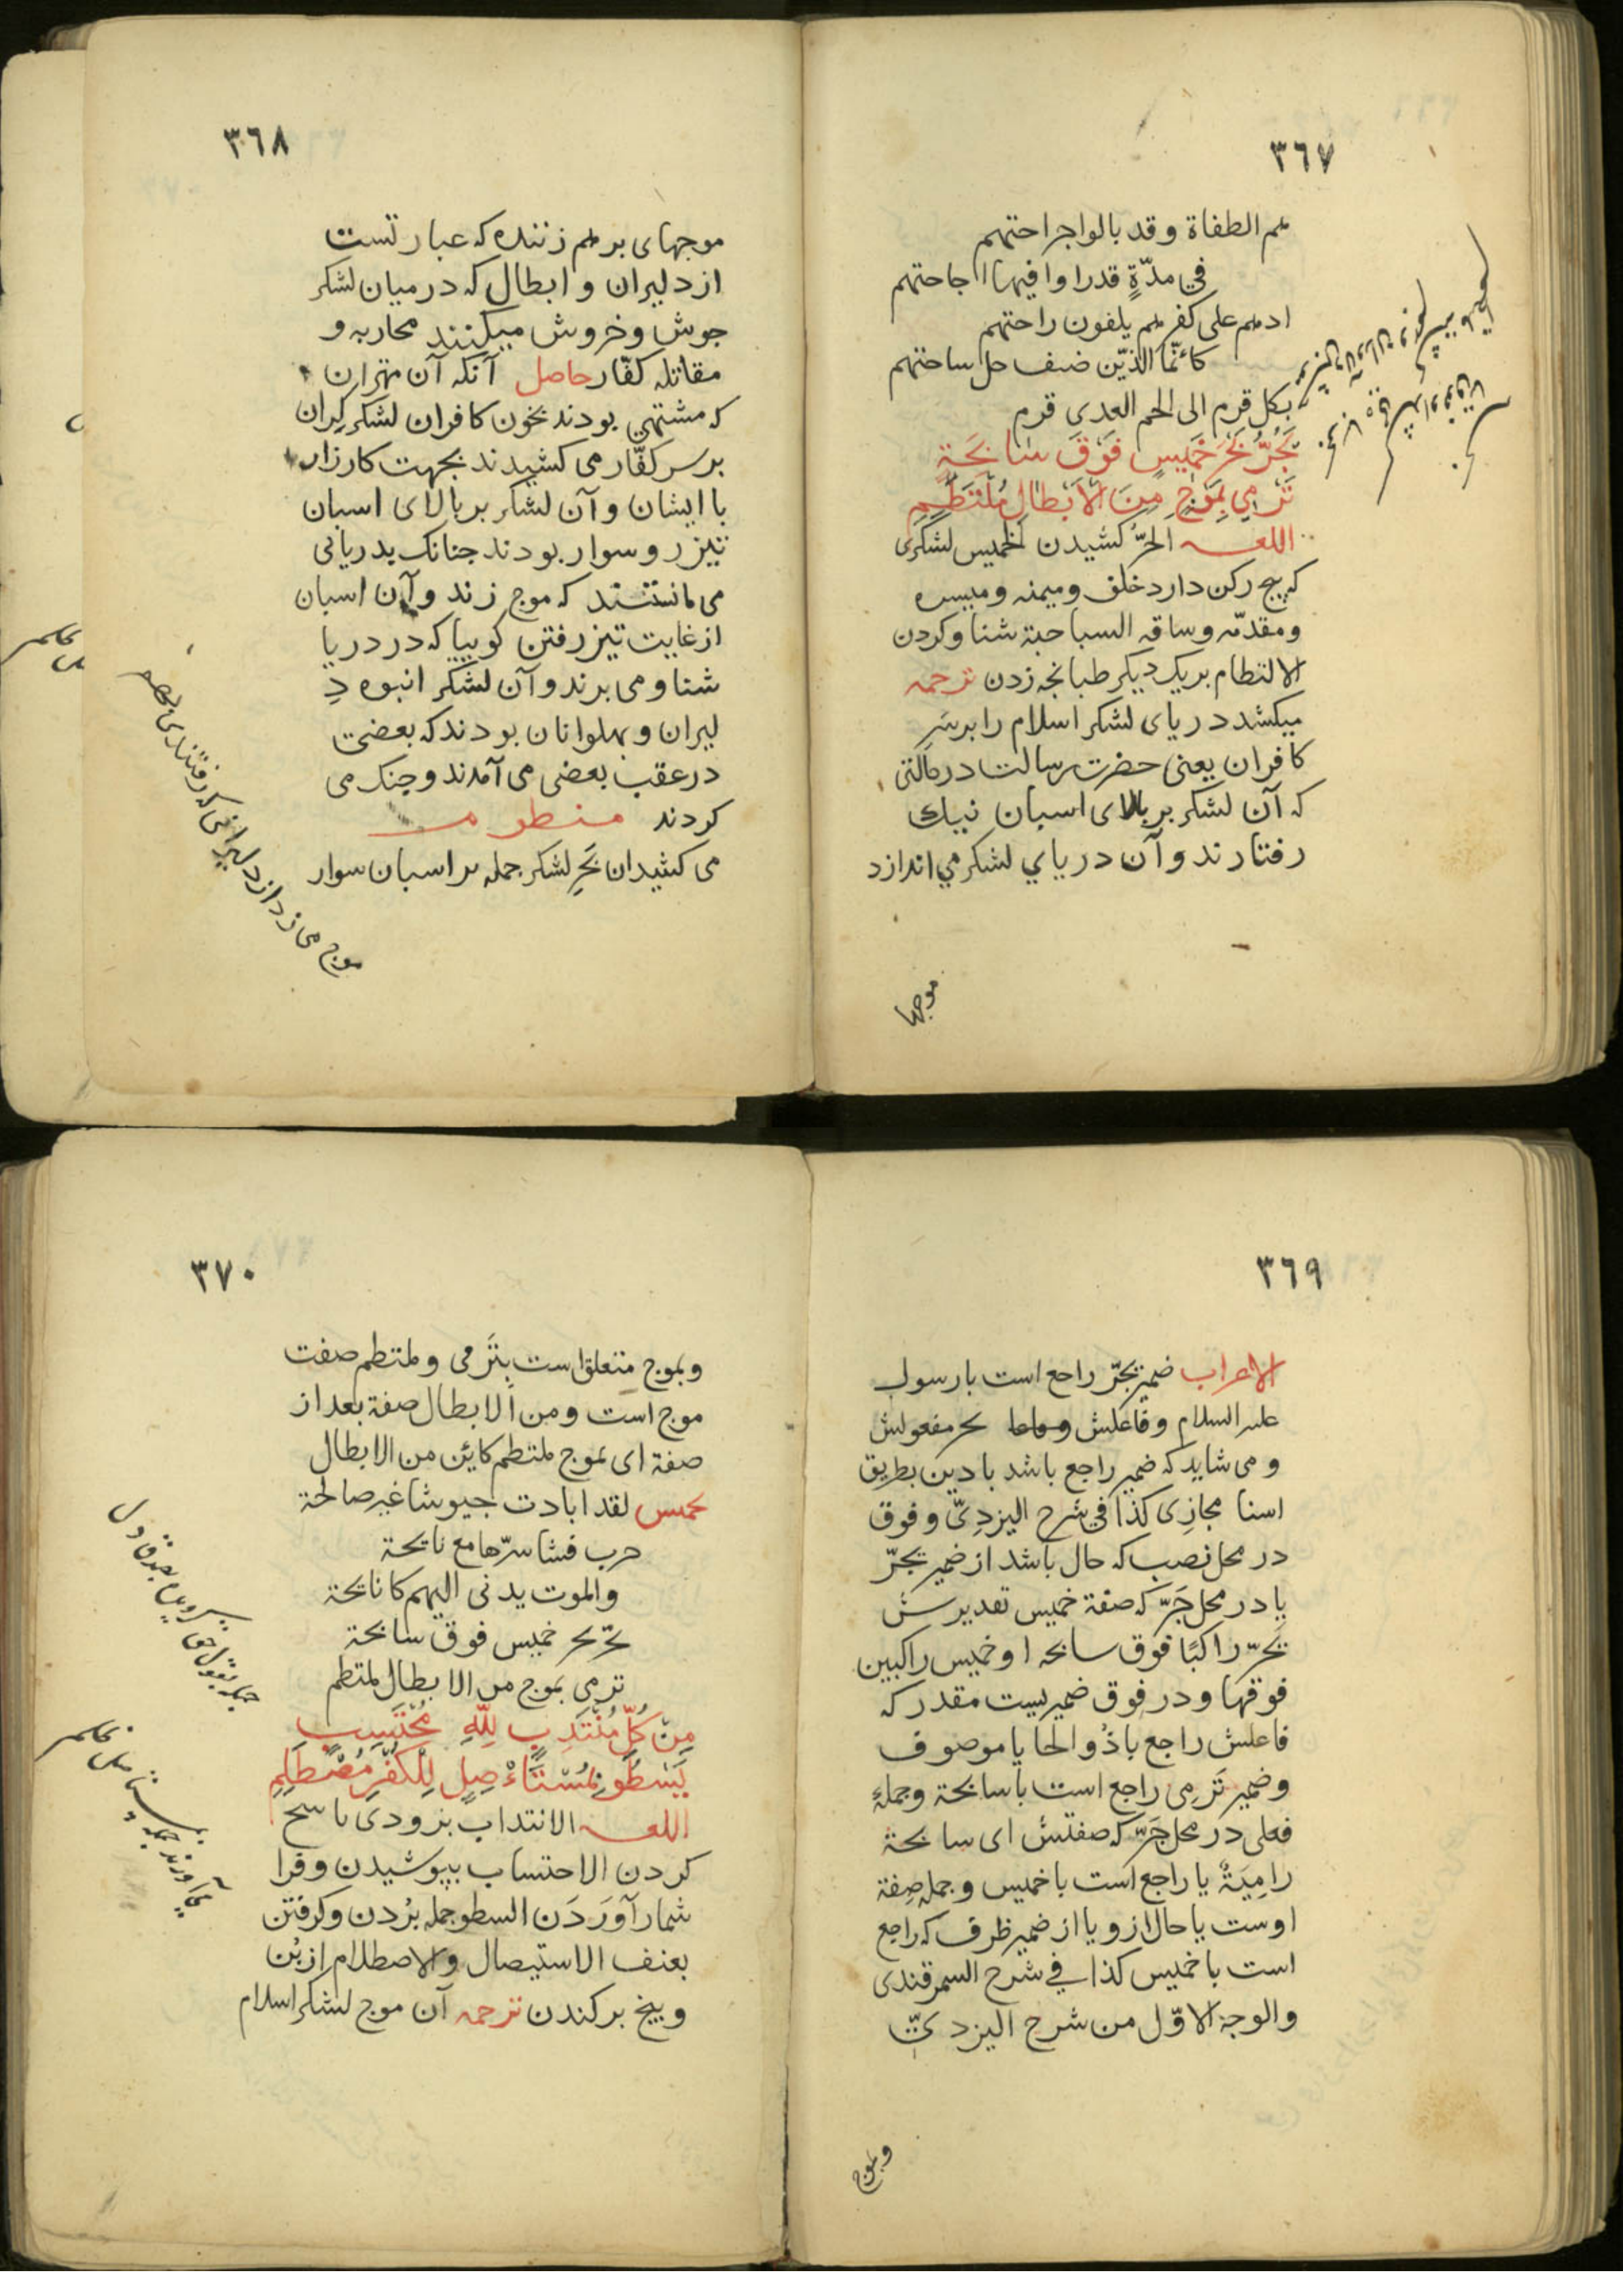 ٣٦٧
هم الطغاة وقد بالوا جراحتهم
في مدّةٍ قدرا وافيها اجاحتهم
اذ هم على كفرهم يلفون راحتهم
كانّما الدّين ضيف حل ساحتهم
بكل قرم الى لحم العدى قرم
يَجُرُّ بَحْرَ خَمِيسٍ فَوْقَ سَابِحَةٍ
تَرْمِي بِمَوْجٍ مِنَ الْاَبْطَالِ مُلْتَطِمِ
اللغـه الجرُّ كشيدن الخميس لشكرى
كه پنج ركن دارد خلف وميمنه وميسره
ومقدّمه وساقه السباحة شنا وكردن
الالتطام بريك ديكر طبانجه زدن ترجمه
ميكشد درياى لشكر اسلام را برسَرِ
كافران يعنى حضرت رسالت درحالتى
كه آن لشكر بر بالاى اسبان نيك
رفتارند وآن درياي لشكر مي اندازد
موجها
٣٦٨
موجهاى برهم زننده كه عبارتست
از دليران و ابطال كه درميان لشكر
جوش وخروش ميكنند محاربه و
مقاتله كفّار حاصل آنكه آن مهتران
كه مشتهى بودند بخون كافران لشكر كران
بر سر كفّار مى كشيدند بجهت كارزار
با ايشان وآن لشكر بر بالاى اسبان
تيزرو سوار بودند جنانك بدريائى
مى مانستند كه موج زند وآن اسبان
از غايت تيز رفتن كوييا كه در دريا
شنا و مى برند وآن لشكر انبوه دِ
ليران و پهلوانان بودند كه بعضى
در عقب بعضى مى آمدند وجنك مى
كردند منظومه
مى كشيدان بَحرِ لشكر جمله بر اسبان سوار
موج مى زد از دليرانى كه رفتندى
٣٦٩
الاعراب ضمير يجرّ راجع است بارسول
عليه السلام وفاعلش بحر مفعولش
و مى شايد كه ضمير راجع باشد بادين بطريق
اسنا مجازى كذا في شرح اليزدىّ و فوق
در محل نصب كه حال باشد از ضمير يجرّ
يا در محل جَرّ كه صفة خميس تقديرش
يَجرّ راكبًا فوق سابحه او خميس راكبين
فوقها و در فوق ضميريست مقدر كه
فاعلش راجع باذو الحا يا موصوف
وضمير تَرمِى راجع است باسابحة وجملهٔ
فعلى در محل جَرّ كه صفتش اى سابحة
رامِيَةٌ يا راجع است باخميس وجمله صِفة
اوست يا حال ازو يا از ضمير ظرف كه راجع
است باخميس كذا في شرح السمرقندى
والوجه الاوّل من شرح اليزدىّ
وبموج
٣٧٠
وبموج متعلق است بتَرمى وملتطم صفت
موج است ومن الابطال صفة بعد از
صفة اى بموج ملتطم كاين من الابطال
تخميس لقد ابادت جيوشا غير صالحة
حرب فشا سرّها مع نايحة
والموت يدنى اليهم كانايحة
يجرّ بحر خميس فوق سابحة
ترمى بموج من الابطال ملتطم
مِنْ كُلِّ مُنْتَدِبٍ لِلّٰهِ مُحْتَسِبٍ
يَسْطُو بِمُسْتَأْصِلٍ لِلْكُفْرِ مُصْطَلِمِ
اللغـه الانتداب بزودى باسخ
كردن الاحتساب بپوشيدن وفرا
شمار آوَردَن السطو حمله بُردن وكرفتن
بعنف الاستيصال والاصطلام از بُن
وبيخ بركندن ترجمه آن موج لشكر اسلام